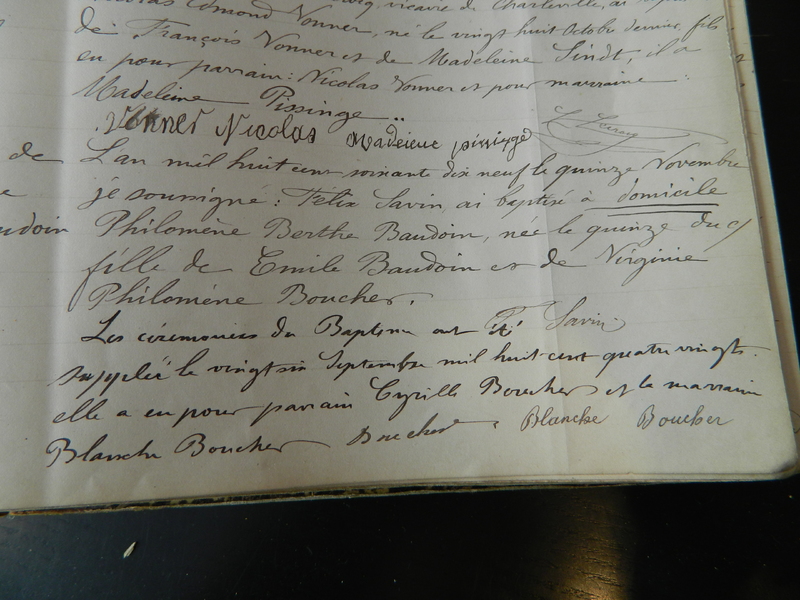 Nicolas Edmond Vonner, vicaire de Charleville, ai
de François Vonner et de Madeleine Sindt, il a
né le vingt huit Octobre dernier, fils
eu pour parrain : Nicolas Vonner et pour marraine :
Madeleine Pissinge
Vonner Nicolas Madeleine pissinge
de L'an mil huit cent soixante dix neuf le quinze Novembre
je soussigné : Félix Savin, ai baptisé à domicile
udoin Philomène Berthe Baudoin, née le quinze du
fille de Emile Baudoin et de Virginie
Philomène Boucher.
F. Savin
Les cérémonies du Baptême ont été
suppléé le vingt six Septembre mil huit-cent quatre vingts.
elle a eu pour parrain Cyrille Boucher et la marraine
Blanche Boucher Boucher Blanche Boucher